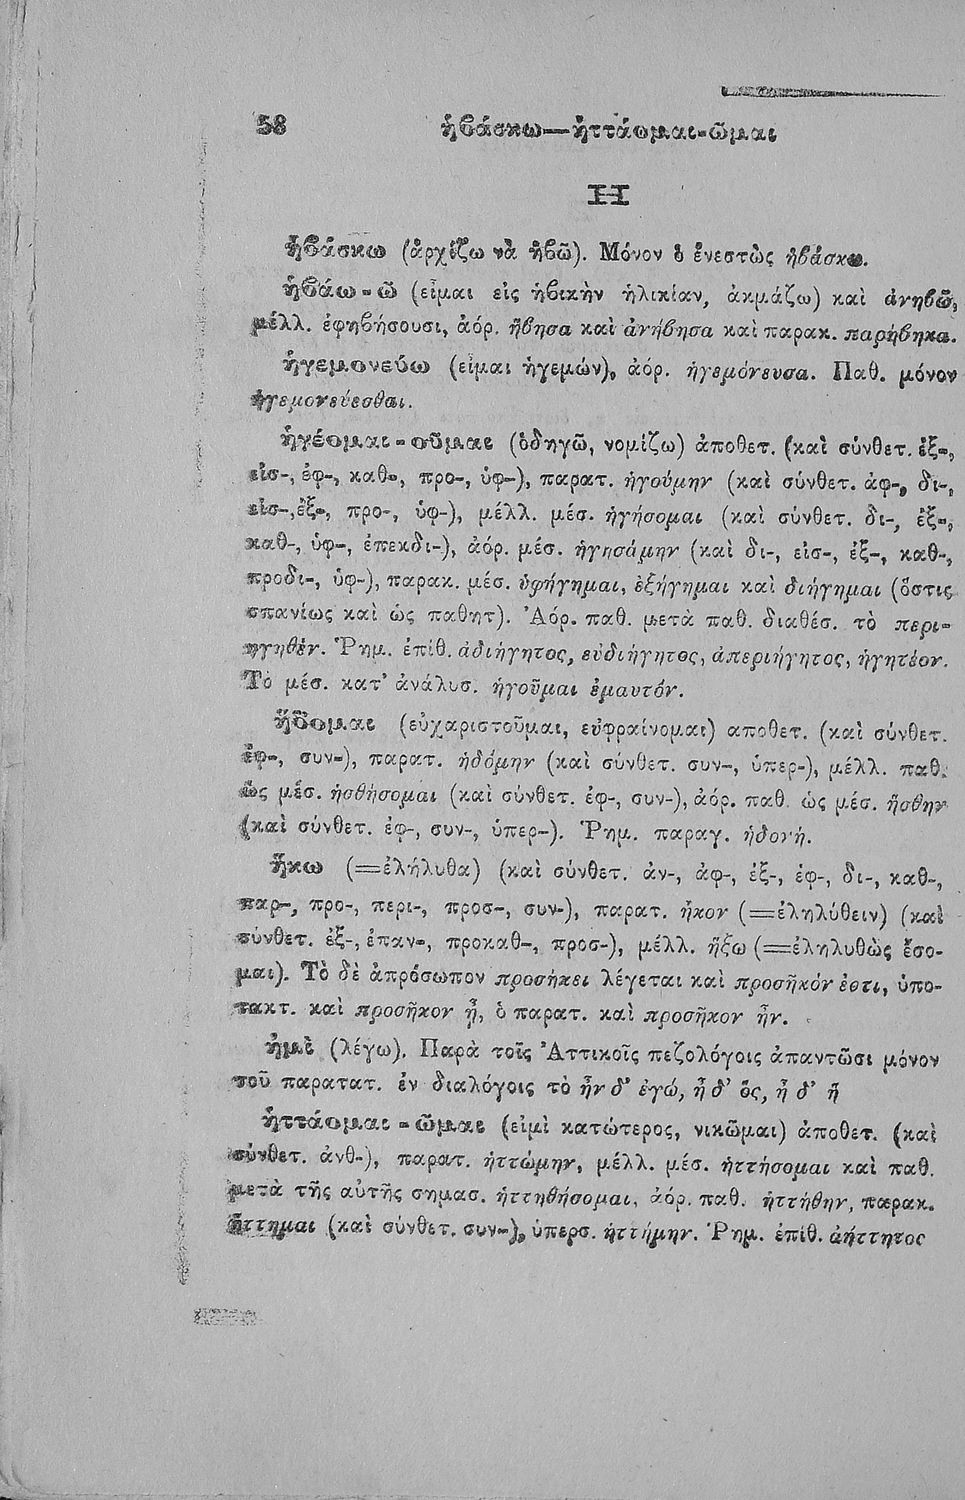 58 ἡβάσκω—ἡττάομαι-ῶμαι
Η
ἡβάσκω (ἀρχίζω νὰ ἡβῶ). Μόνον ὁ ἐνεστὼς ἡβάσκω.
ἡβάω-ῶ (εἶμαι εἰς ἡβικὴν ἡλικίαν, ἀκμάζω) καὶ ἀνηβῶ,
μέλλ. ἐφηβήσουσι, ἀόρ. ἥβησα καὶ ἀνήβησα καὶ παρακ. παρήβηκα.
ἡγεμονεύω (εἶμαι ἡγεμών), ἀόρ. ἡγεμόνευσα. Παθ. μόνον
ἡγεμονεύεσθαι.
ἡγέομαι-οῦμαι (ὁδηγῶ, νομίζω) ἀποθετ. (καὶ σύνθετ. ἐξ-,
εἰσ-, ἐφ-, καθ-, προ-, ὑφ-), παρατ. ἡγούμην (καὶ σύνθετ. ἀφ-, δι-,
εἰσ-,ἐξ-, προ-, ὑφ-), μέλλ. μέσ. ἡγήσομαι (καὶ σύνθετ. δι-, ἐξ-,
καθ-, ὑφ-, ἐπεκδι-), ἀόρ. μέσ. ἡγησάμην (καὶ δι-, εἰσ-, ἐξ-, καθ-,
προδι-, ὑφ-), παρακ. μέσ. ὑφήγημαι, ἐξήγημαι καὶ διήγημαι (ὅστις
σπανίως καὶ ὡς παθητ). Ἀόρ. παθ. μετὰ παθ. διαθέσ. τὸ περι-
ηγηθέν. Ῥημ. ἐπίθ. ἀδιήγητος, εὐδιήγητος, ἀπεριήγητος, ἡγητέον.
Τὸ μέσ. κατ’ ἀνάλυσ. ἡγοῦμαι ἐμαυτόν.
ἥδομαι (εὐχαριστοῦμαι, εὐφραίνομαι) αποθετ. (καὶ σύνθετ.
ἐφ-, συν-), παρατ. ἡδόμην (καὶ σύνθετ. συν-, ὑπερ-), μέλλ. παθ.
ὡς μέσ. ἡσθήσομαι (καὶ σύνθετ. ἐφ-, συν-), ἀόρ. παθ. ὡς μέσ. ἥσθην
(καὶ σύνθετ. ἐφ-, συν-, ὑπερ-). Ῥημ. παραγ. ἡδονή.
ἥκω (=ἐλήλυθα) (καὶ σύνθετ. ἀν-, ἀφ-, ἐξ-, ἐφ-, δι-, καθ-,
παρ-, προ-, περι-, προσ-, συν-), παρατ. ἧκον (=ἐληλύθειν) (καὶ
σύνθετ. ἐξ-, ἐπαν-, προκαθ-, προσ-), μέλλ. ἥξω (=ἐληλυθὼς ἔσο-
μαι). Τὸ δὲ ἀπρόσωπον προσήκει λέγεται καὶ προσῆκόν ἐστι, ὑπο-
τακτ. καὶ προσῆκον ᾖ, ὁ παρατ. καὶ προσῆκον ἦν.
ἠμὶ (λέγω). Παρὰ τοῖς Ἀττικοῖς πεζολόγοις ἀπαντῶσι μόνον
τοῦ παρατατ. ἐν διαλόγοις τὸ ἦν δ’ ἐγώ, ἦ δ’ ὅς, ἦ δ’ ἥ
ἡττάομαι-ῶμαι (εἰμὶ κατώτερος, νικῶμαι) ἀποθετ. (καὶ
σύνθετ. ἀνθ-), παρατ. ἡττώμην, μέλλ. μέσ. ἡττήσομαι καὶ παθ.
μετὰ τῆς αὐτῆς σημασ. ἡττηθήσομαι, ἀόρ. παθ. ἡττήθην, παρακ.
ἥττημαι (καὶ σύνθετ. συν-), ὑπερσ. ἡττήμην. Ῥημ. ἐπίθ. ἀήττητος